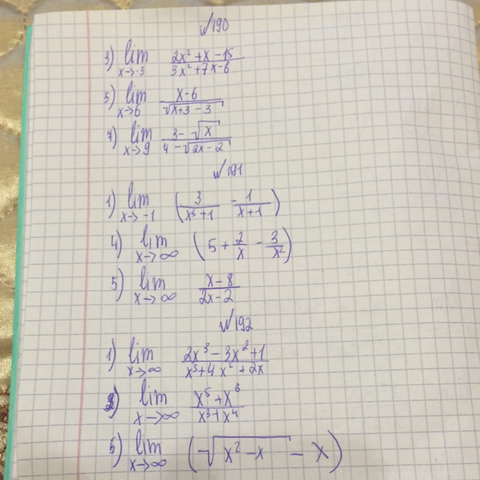 №190
3) lim x→-3 (2x² + x - 15)/(3x² + 7x - 6)
5) lim x→6 (x-6)/(√(x+3) - 3)
7) lim x→9 (3 - √x)/(4 - √(2x - 2))
№191
1) lim x→-1 (3/(x³+1) - 1/(x+1))
4) lim x→∞ (5 + 2/x - 3/x²)
5) lim x→∞ (x-8)/(2x-2)
№192
1) lim x→∞ (2x³ - 3x² + 1)/(x³ + 4x² + 2x)
3) lim x→∞ (x⁵ + x⁶)/(x³ + x⁴)
5) lim x→∞ (√(x² - x) - x)